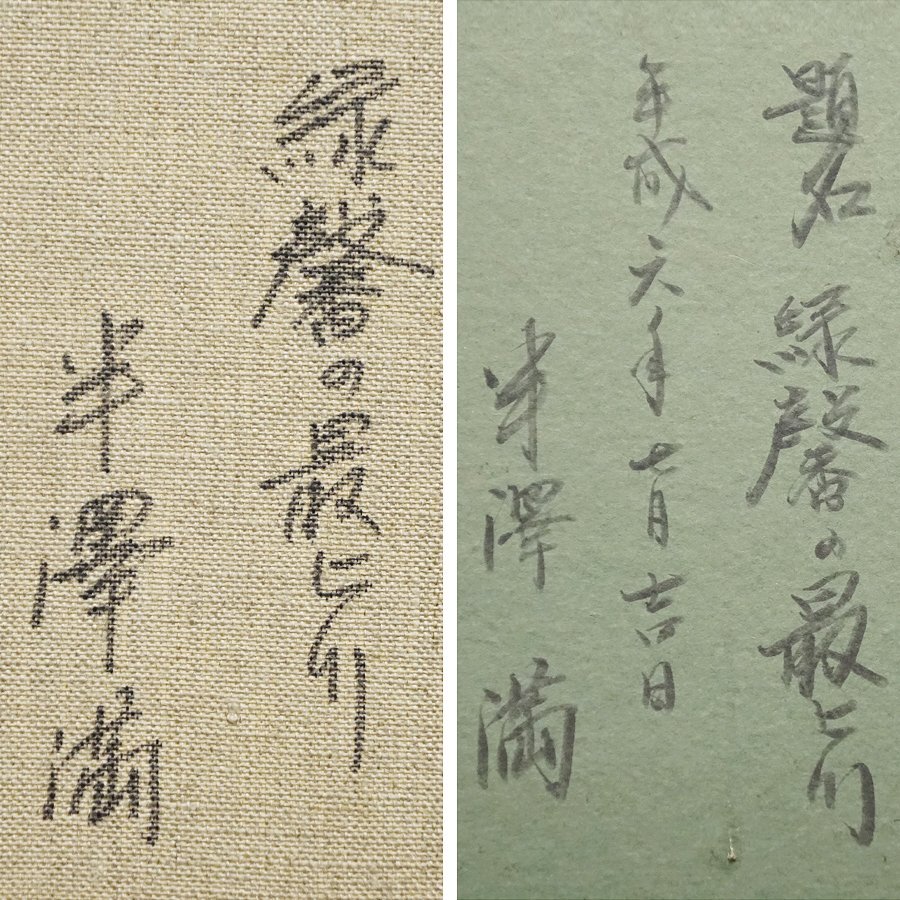 緑馨の最上川
半澤満
題名 緑馨の最上川
平成六年七月吉日
半澤 満